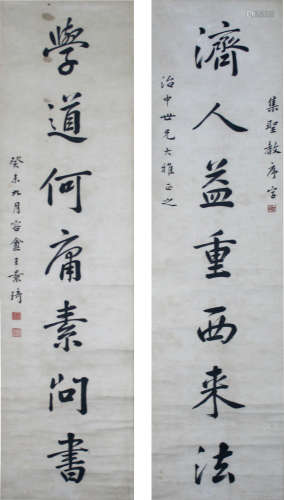 集聖教序字
濟人益重西來法
治中世兄大雅正之
學道何庸素問書
癸未九月